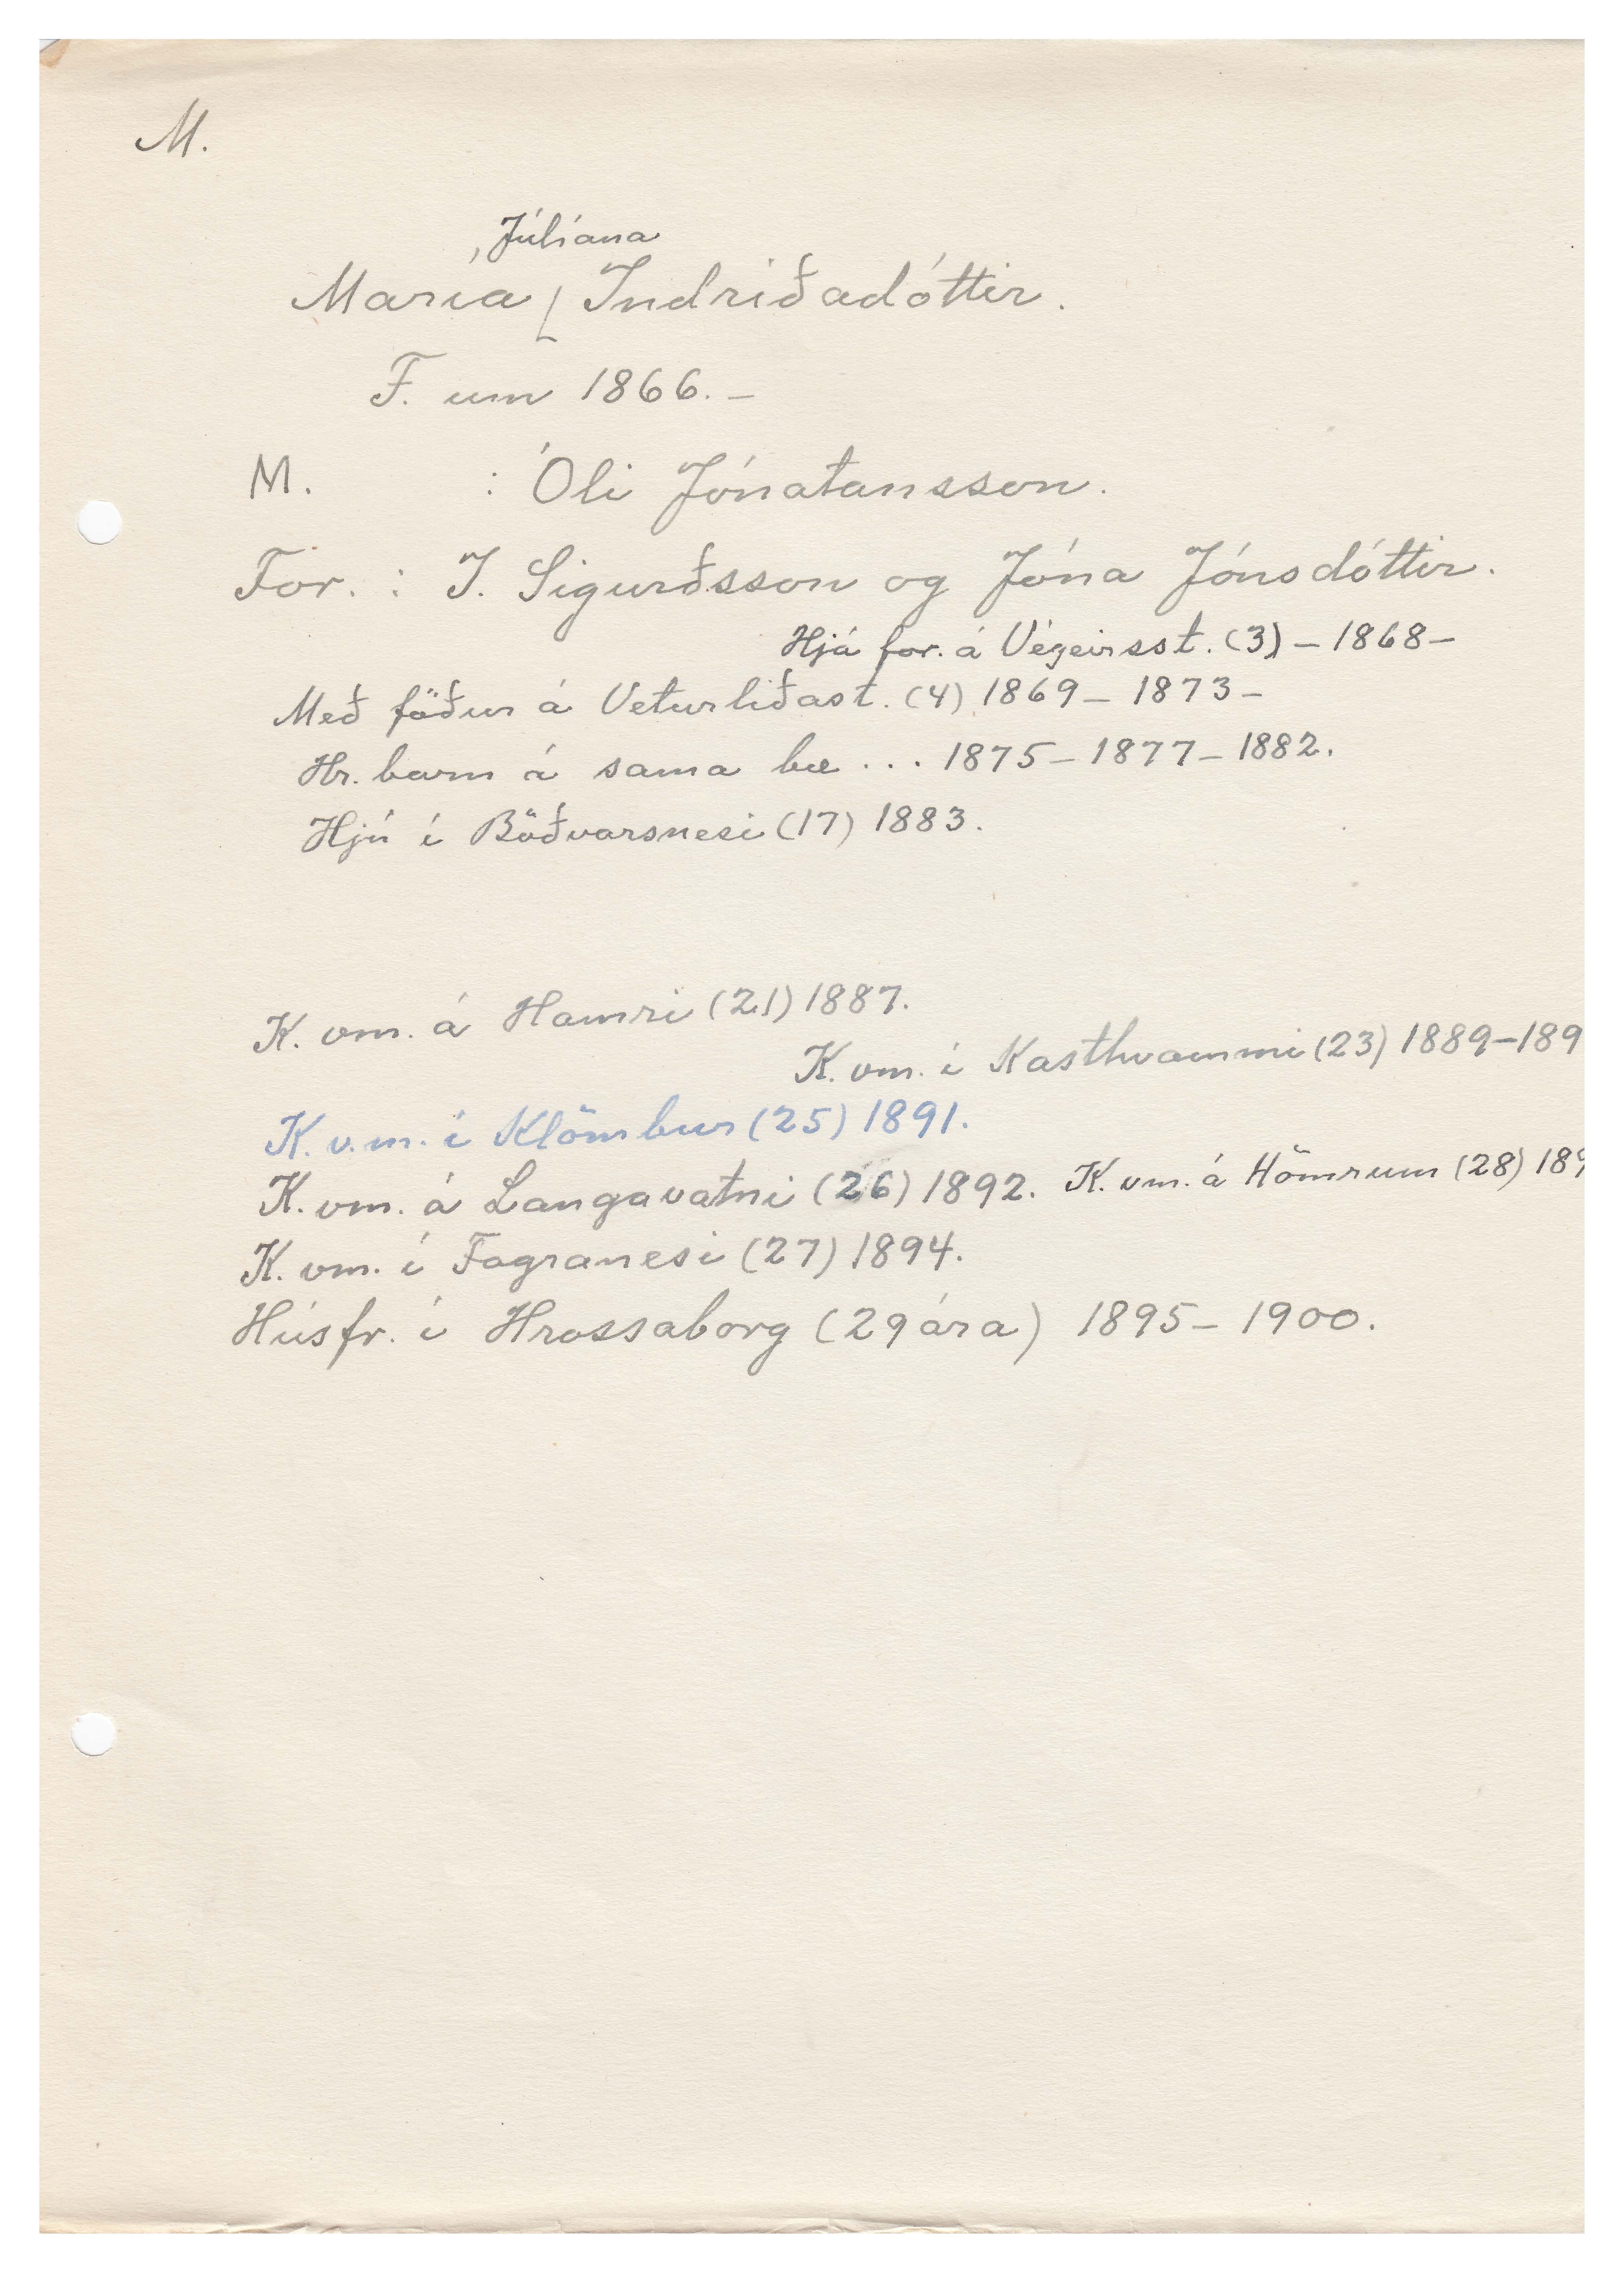 M.
Júlíana
María Indriðadóttir.
F. um 1866. –
M. : Óli Jónatansson.
For. : I. Sigurðsson og Jóna Jónsdóttir.
Hjá for. á Végeirsst. (3) – 1868 –
Með föður á Veturliðast. (4) 1869 – 1873 –
Hr. barn á sama bæ ... 1875 – 1877 – 1882.
Hjú í Böðvarsnesi (17) 1883.
K. vm. á Hamri (21) 1887.
K. vm. í Kasthvammi (23) 1889 – 189
K. v.m. í Klömbur (25) 1891.
K. vm. á Langavatni (26) 1892. K. vm. á Hömrum (28) 189
K. vm. í Fagranesi (27) 1894.
Húsfr. í Hrossaborg (29 ára) 1895 – 1900.